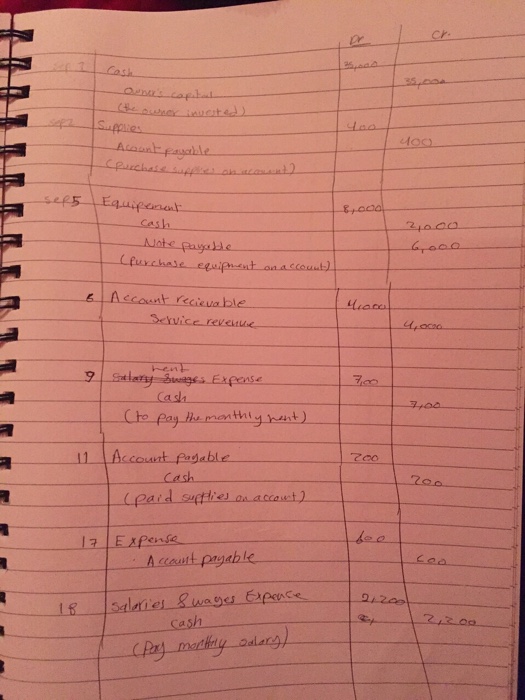 Dr Cr.
Sep 1 Cash 35,000
Owner's capital 35,000
(the owner invested)
Sep 2 Supplies 400
Acount payable 400
(purchase supplies on account)
Sep 5 Equipement 8,000
Cash 2,000
Note payable 6,000
(purchase equipment on account)
6 Account recievable 4,000
Service revenue 4,000
9 Salary & wages rent Expense 7,00
Cash 7,00
(to pay the monthly rent)
11 Account Payable 200
Cash 200
(paid supplies on account)
17 Expense 600
Account payable 600
18 Salaries & wages Expence 2,200
Cash 2,200
(Pay monthly salary)